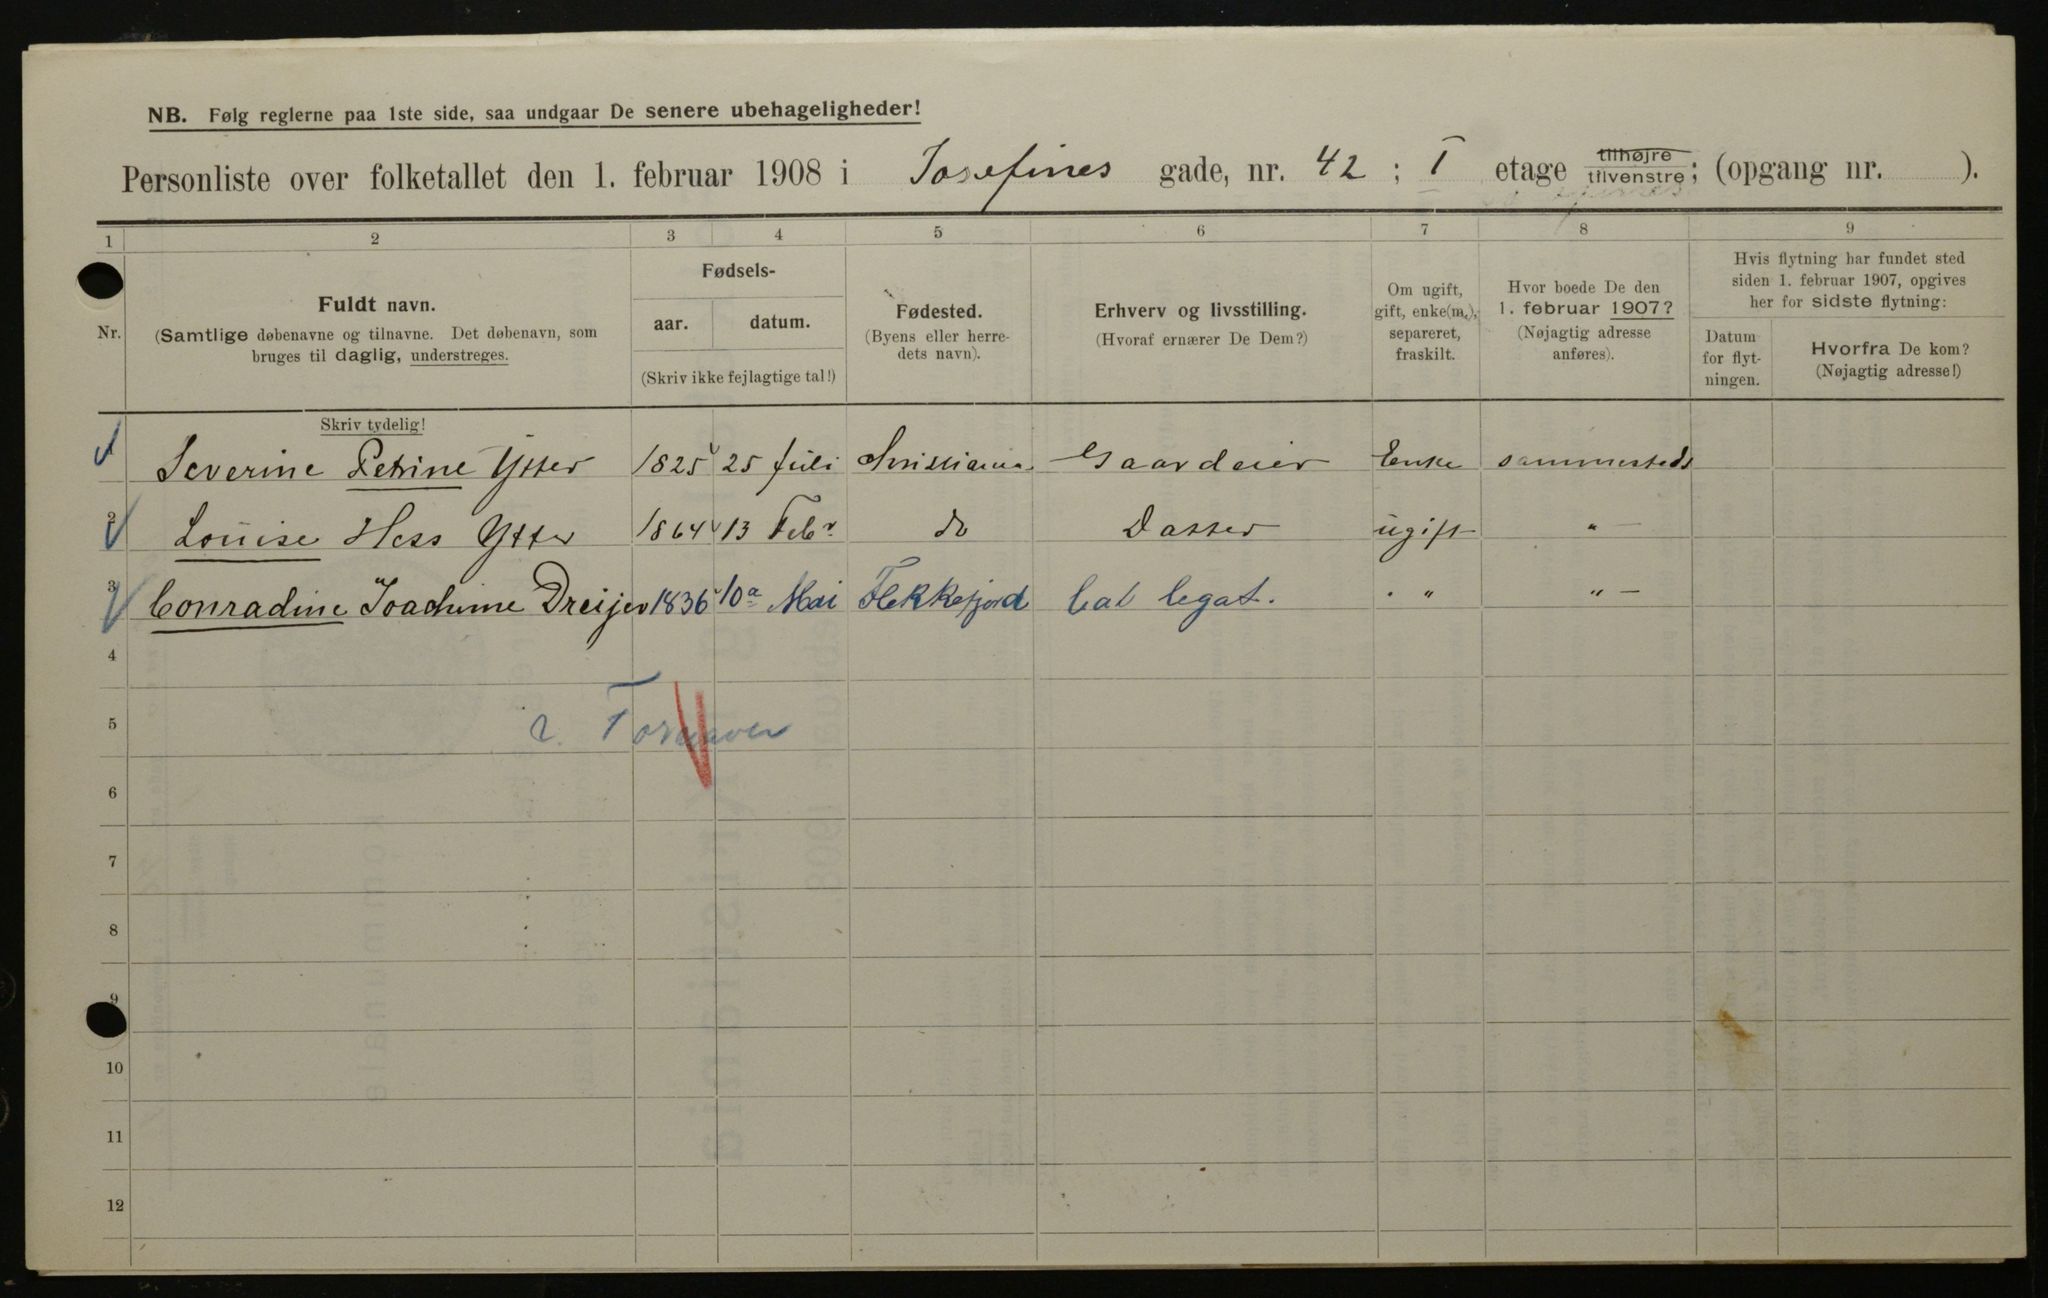 NB. Følg reglerne paa 1ste side, saa undgaar De senere ubehageligheder!
Personliste over folketallet den 1. februar 1908 i Josefines gade, nr. 42 ; I etage tilhøjre tilvenstre; (opgang nr. ).
1 2 3 4 5 6 7 8 9
Nr.
Fuldt navn.
(Samtlige døbenavne og tilnavne. Det døbenavn, som
bruges til daglig, understreges.
Skriv tydelig!
Fødsels-
aar. datum.
(Skriv ikke fejlagtige tal!)
Fødested.
(Byens eller herre-
dets navn).
Erhverv og livsstilling.
(Hvoraf ernærer De Dem?)
Om ugift,
gift, enke(m.),
separeret,
fraskilt.
Hvor boede De den
1. februar 1907?
(Nøjagtig adresse
anføres).
Hvis flytning har fundet sted
siden 1. februar 1907, opgives
her for sidste flytning:
Datum
for flyt-
ningen.
Hvorfra De kom?
(Nøjagtig adresse!)
1 Severine Petrine Ytter 1825 25 juli Christiania Gaardeier Enke sammesteds
2 Louise Hess Ytter 1864 13 Febr do Datter ugift " —
3 Conradine Joachime Dreijer 1836 10a Mai Flekkefjord legat. " " —
4
5
6
7
8
9
10
11
12